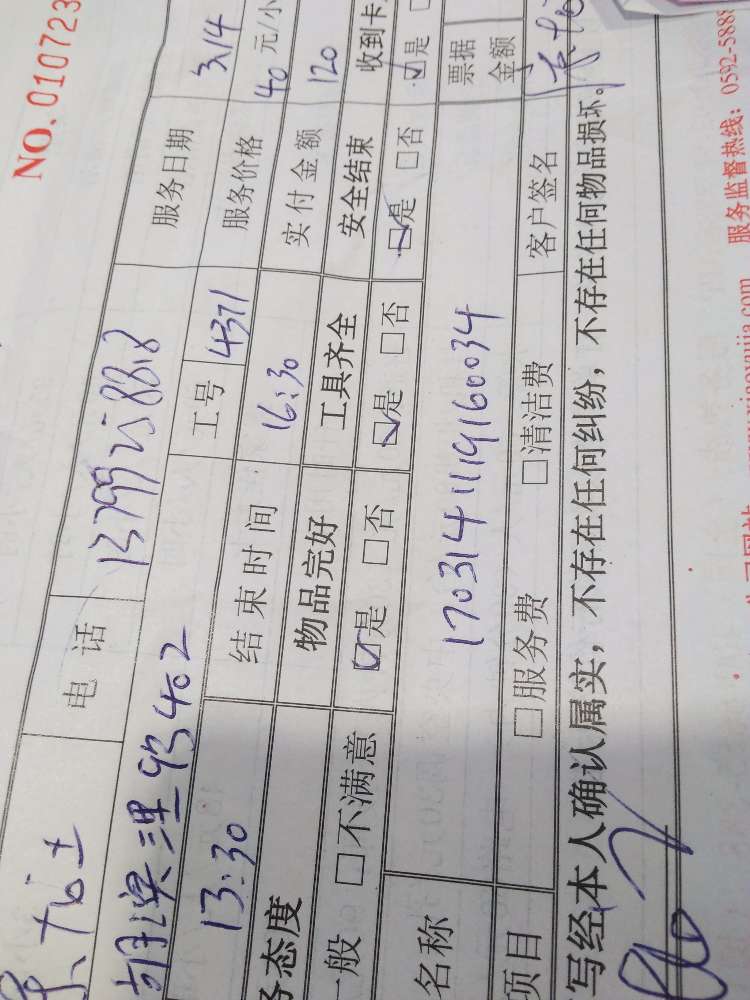 NO. 010723
电话 13799258818 服务日期 3.14
工号 4371 服务价格 40 元/小
93 402
13:30 结束时间 16:30 实付金额 120
务态度 物品完好 工具齐全 安全结束 收到卡
一般 □不满意 ☑是 □否 ☑是 □否 ☑是 □否 ☑是
名称 1703141119160034 票据金额
项目 □服务费 □清洁费 客户签名
写经本人确认属实，不存在任何纠纷，不存在任何物品损坏。
服务监督热线：0592-5888